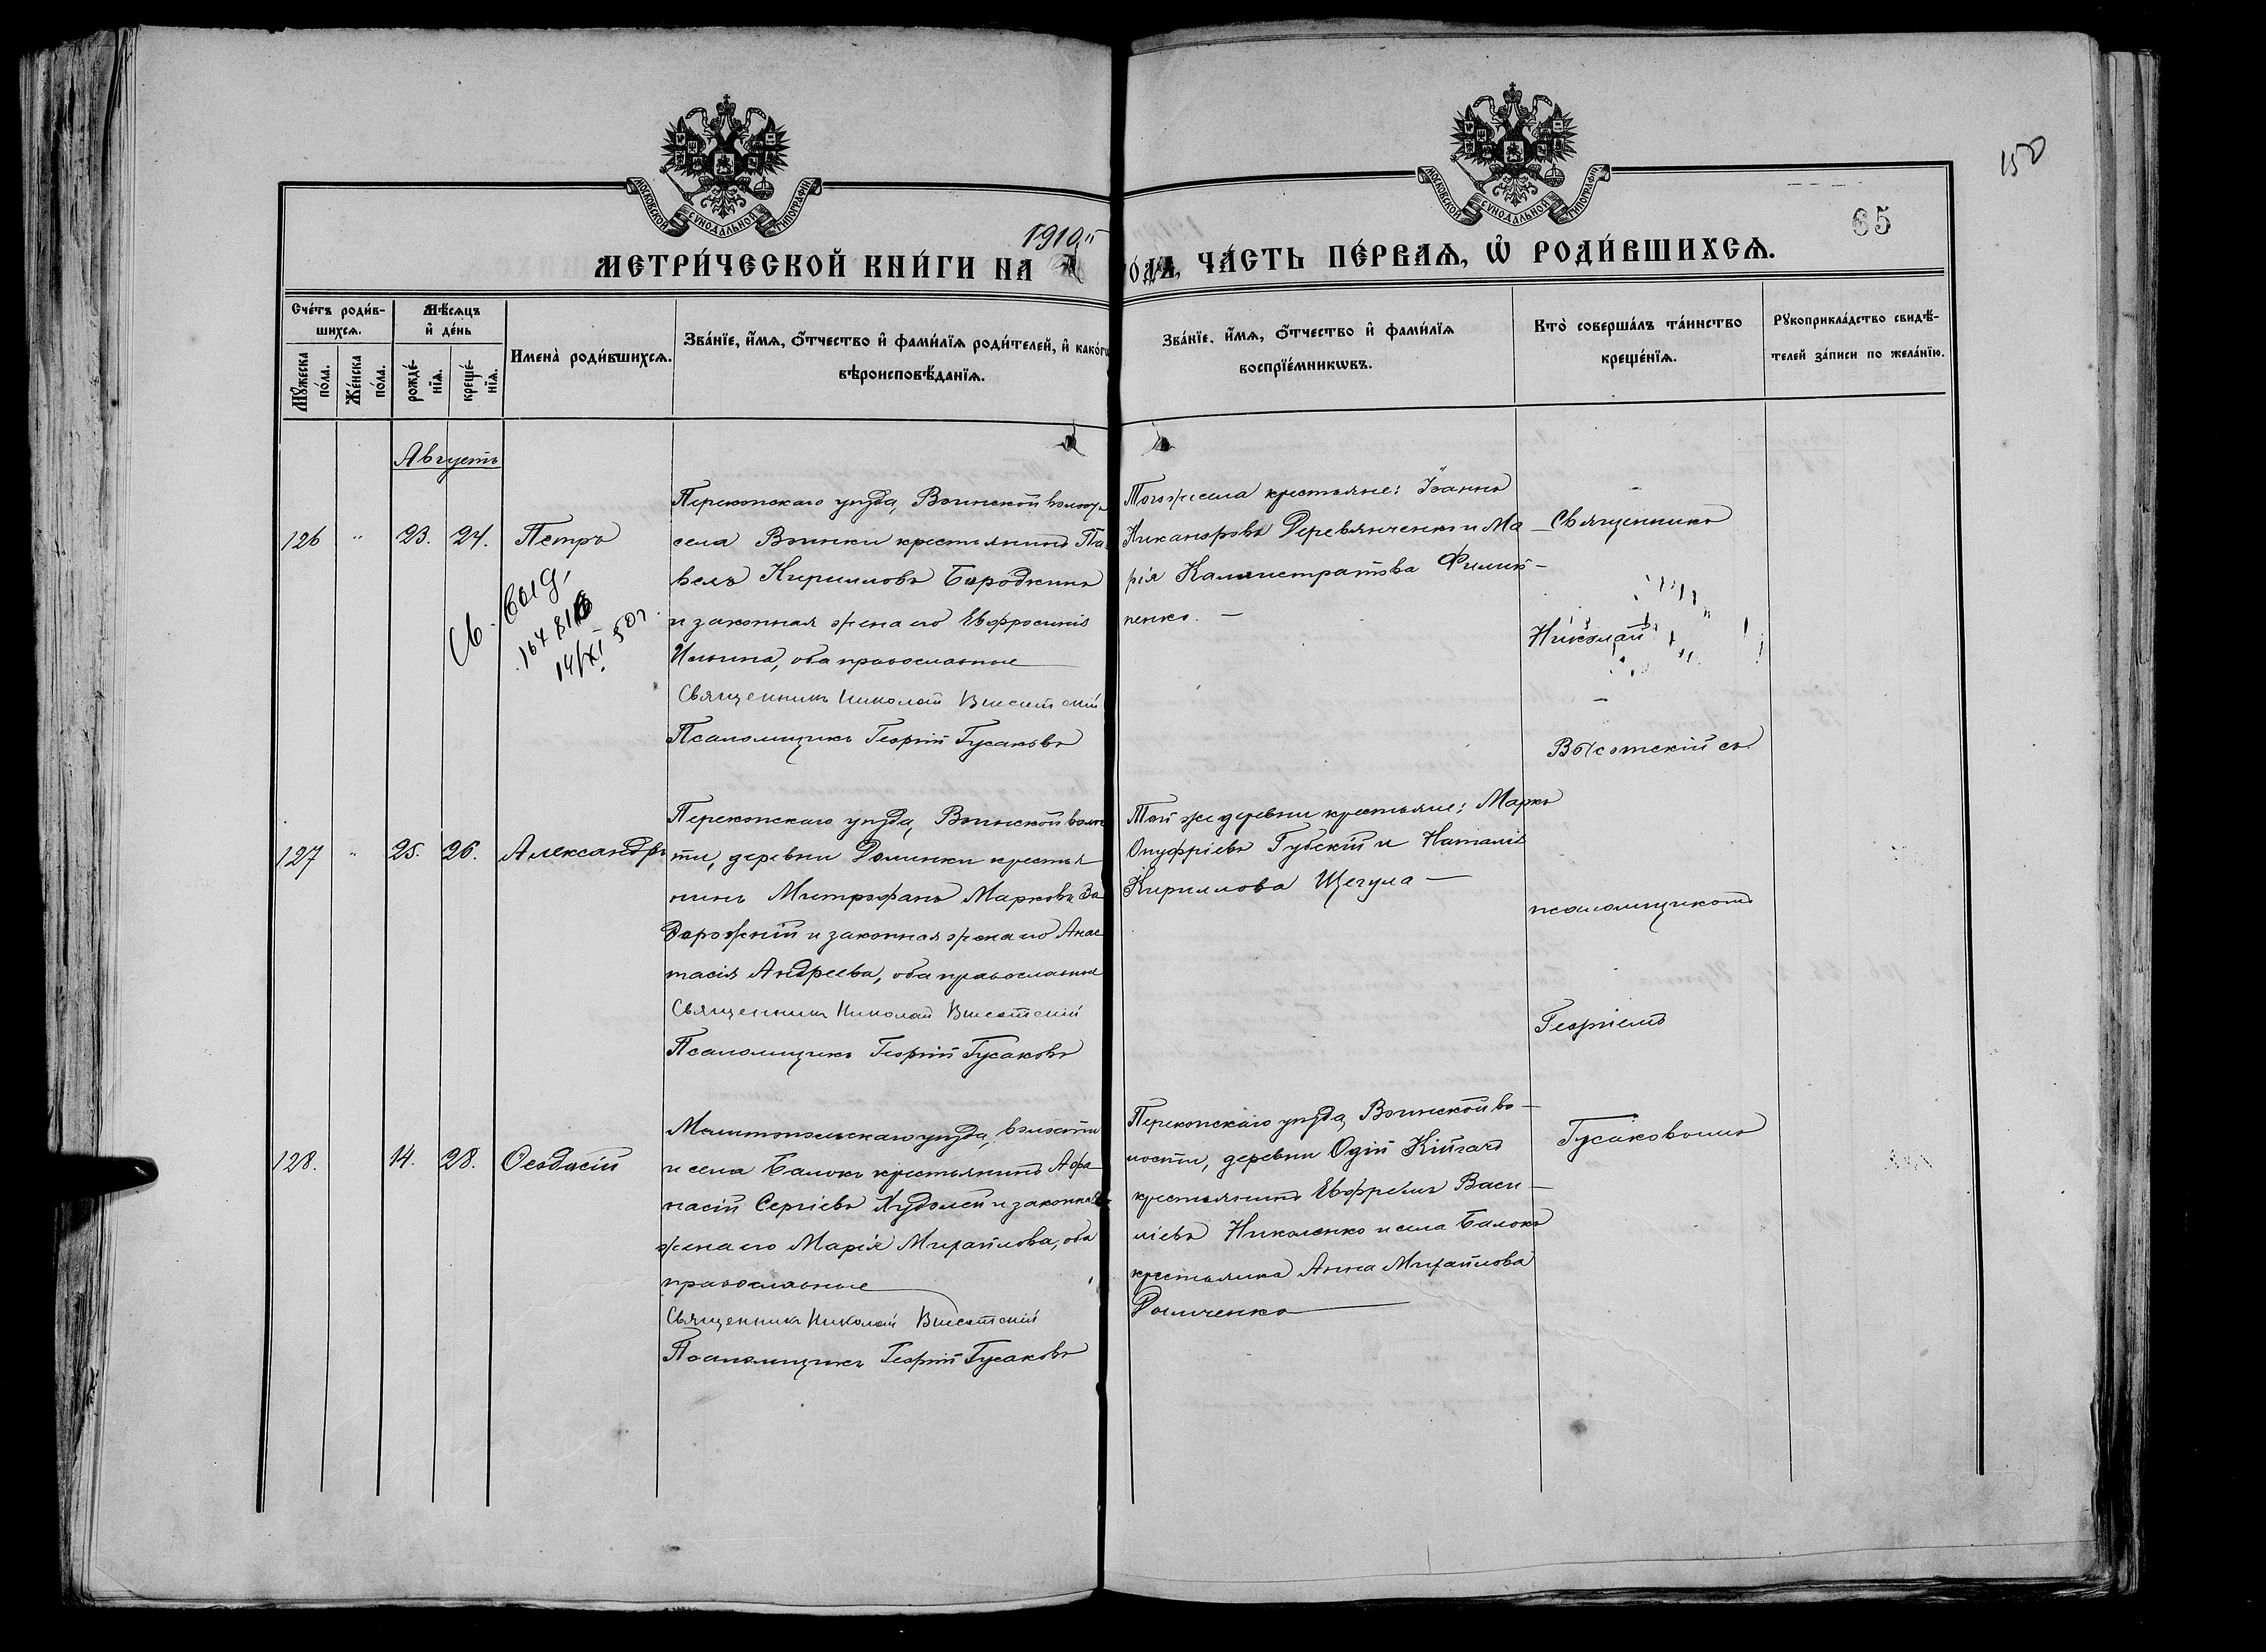 150
65
МОСКОВСКОЙ СѴНОДАЛЬНОЙ ТИПОГРАФІИ
МОСКОВСКОЙ СѴНОДАЛЬНОЙ ТИПОГРАФІИ
1910
МЕТРИ́ЧЕСКОЙ КНИ́ГИ НА
о́да, ЧА́СТЬ ПЕ́РВАѦ, Ѡ҆ РОДИ́ВШИХСѦ.
Сче́тъ роди́в-
шихсѧ.
Мꙋ́жеска по́ла.
Же́нска по́ла.
Мѣ́сѧцъ
и҆ де́нь
рожде́-нїѧ.
креще́-нїѧ.
И҆мена̀ роди́вшихсѧ.
Зва́нїе, и҆́мѧ, ѻ҆́тчество и҆ фами́лїѧ роди́телей, и҆ како́гѡ
вѣроисповѣ́данїѧ.
Зва́нїе, и҆́мѧ, ѻ҆́тчество и҆ фами́лїѧ
воспрїе́мникѡвъ.
Кто̀ соверша́лъ та́инство
креще́нїѧ.
Рꙋкоприкла́дство свидѣ́-
телей за́писи по жела́нїю.
Августъ
126 " 23. 24. Петръ
Св. выд.
16481
14/XI 50г.
Перекопскаго уѣзда, Воинской волост
села Воинки крестьянинъ Па
велъ Кирилловъ Бородкинъ
и законная жена его Евфросинія
Ильина, оба православные
Священникъ Николай Высотскій
Псаломщикъ Георгій Гусаковъ
Того же села крестьяне: Іоаннъ
Никаноровъ Деревянченко и Ма-
рія Каллистратова Филип-
пенко. —
Священникъ
Николай
Высотскій съ
127 " 25. 26. Александръ
Перекопскаго уѣзда, Воинской волос
ти, деревни Долинки крестья
нинъ Митрофанъ Марковъ За
дорожній и законная жена его Анас
тасія Андреева, оба православные
Священникъ Николай Высотскій
Псаломщикъ Георгій Гусаковъ
Той же деревни крестьяне: Маркъ
Онуфріевъ Губскій и Наталія
Кириллова Щегула —
псаломщикомъ
Георгіемъ
128. 14. 28. Ѳеодосій
Мелитопольскаго уѣзда, волости
и села Балокъ крестьянинъ Афа-
насій Сергіевъ Худолей и законная
жена его Марія Михайлова, оба
православные
Священникъ Николай Высотскій
Псаломщикъ Георгій Гусаковъ
Перекопскаго уѣзда, Воинской во-
лости, деревни
крестьянинъ Евфремъ Васи-
ліевъ Николенко и села Балокъ
крестьянка Анна Михайлова
Гусаковымъ